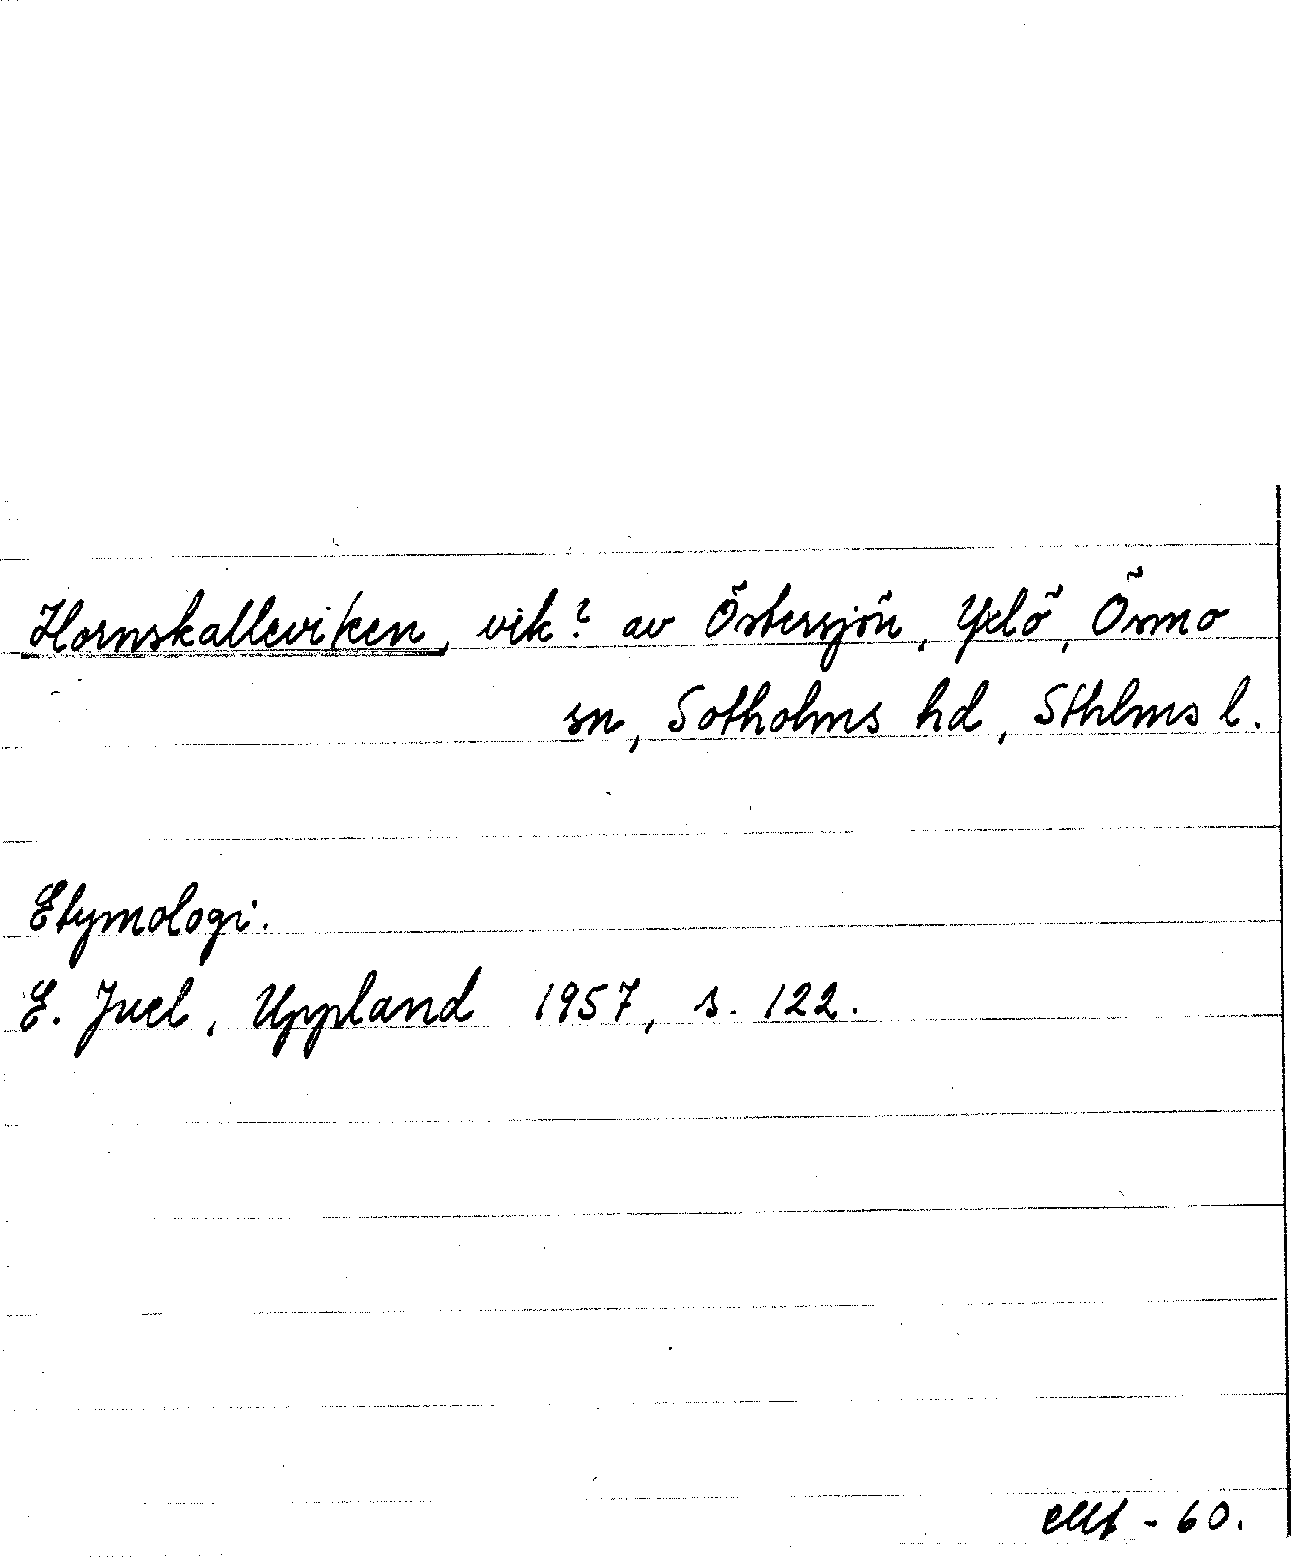 Hornskalleviken, vik? av Östersjön, Yxlö, Ösmo
sn, Sotholms hd, Sthlms l.
Etymologi.
E. Juel, Uppland 1957, s. 122.
- 60.